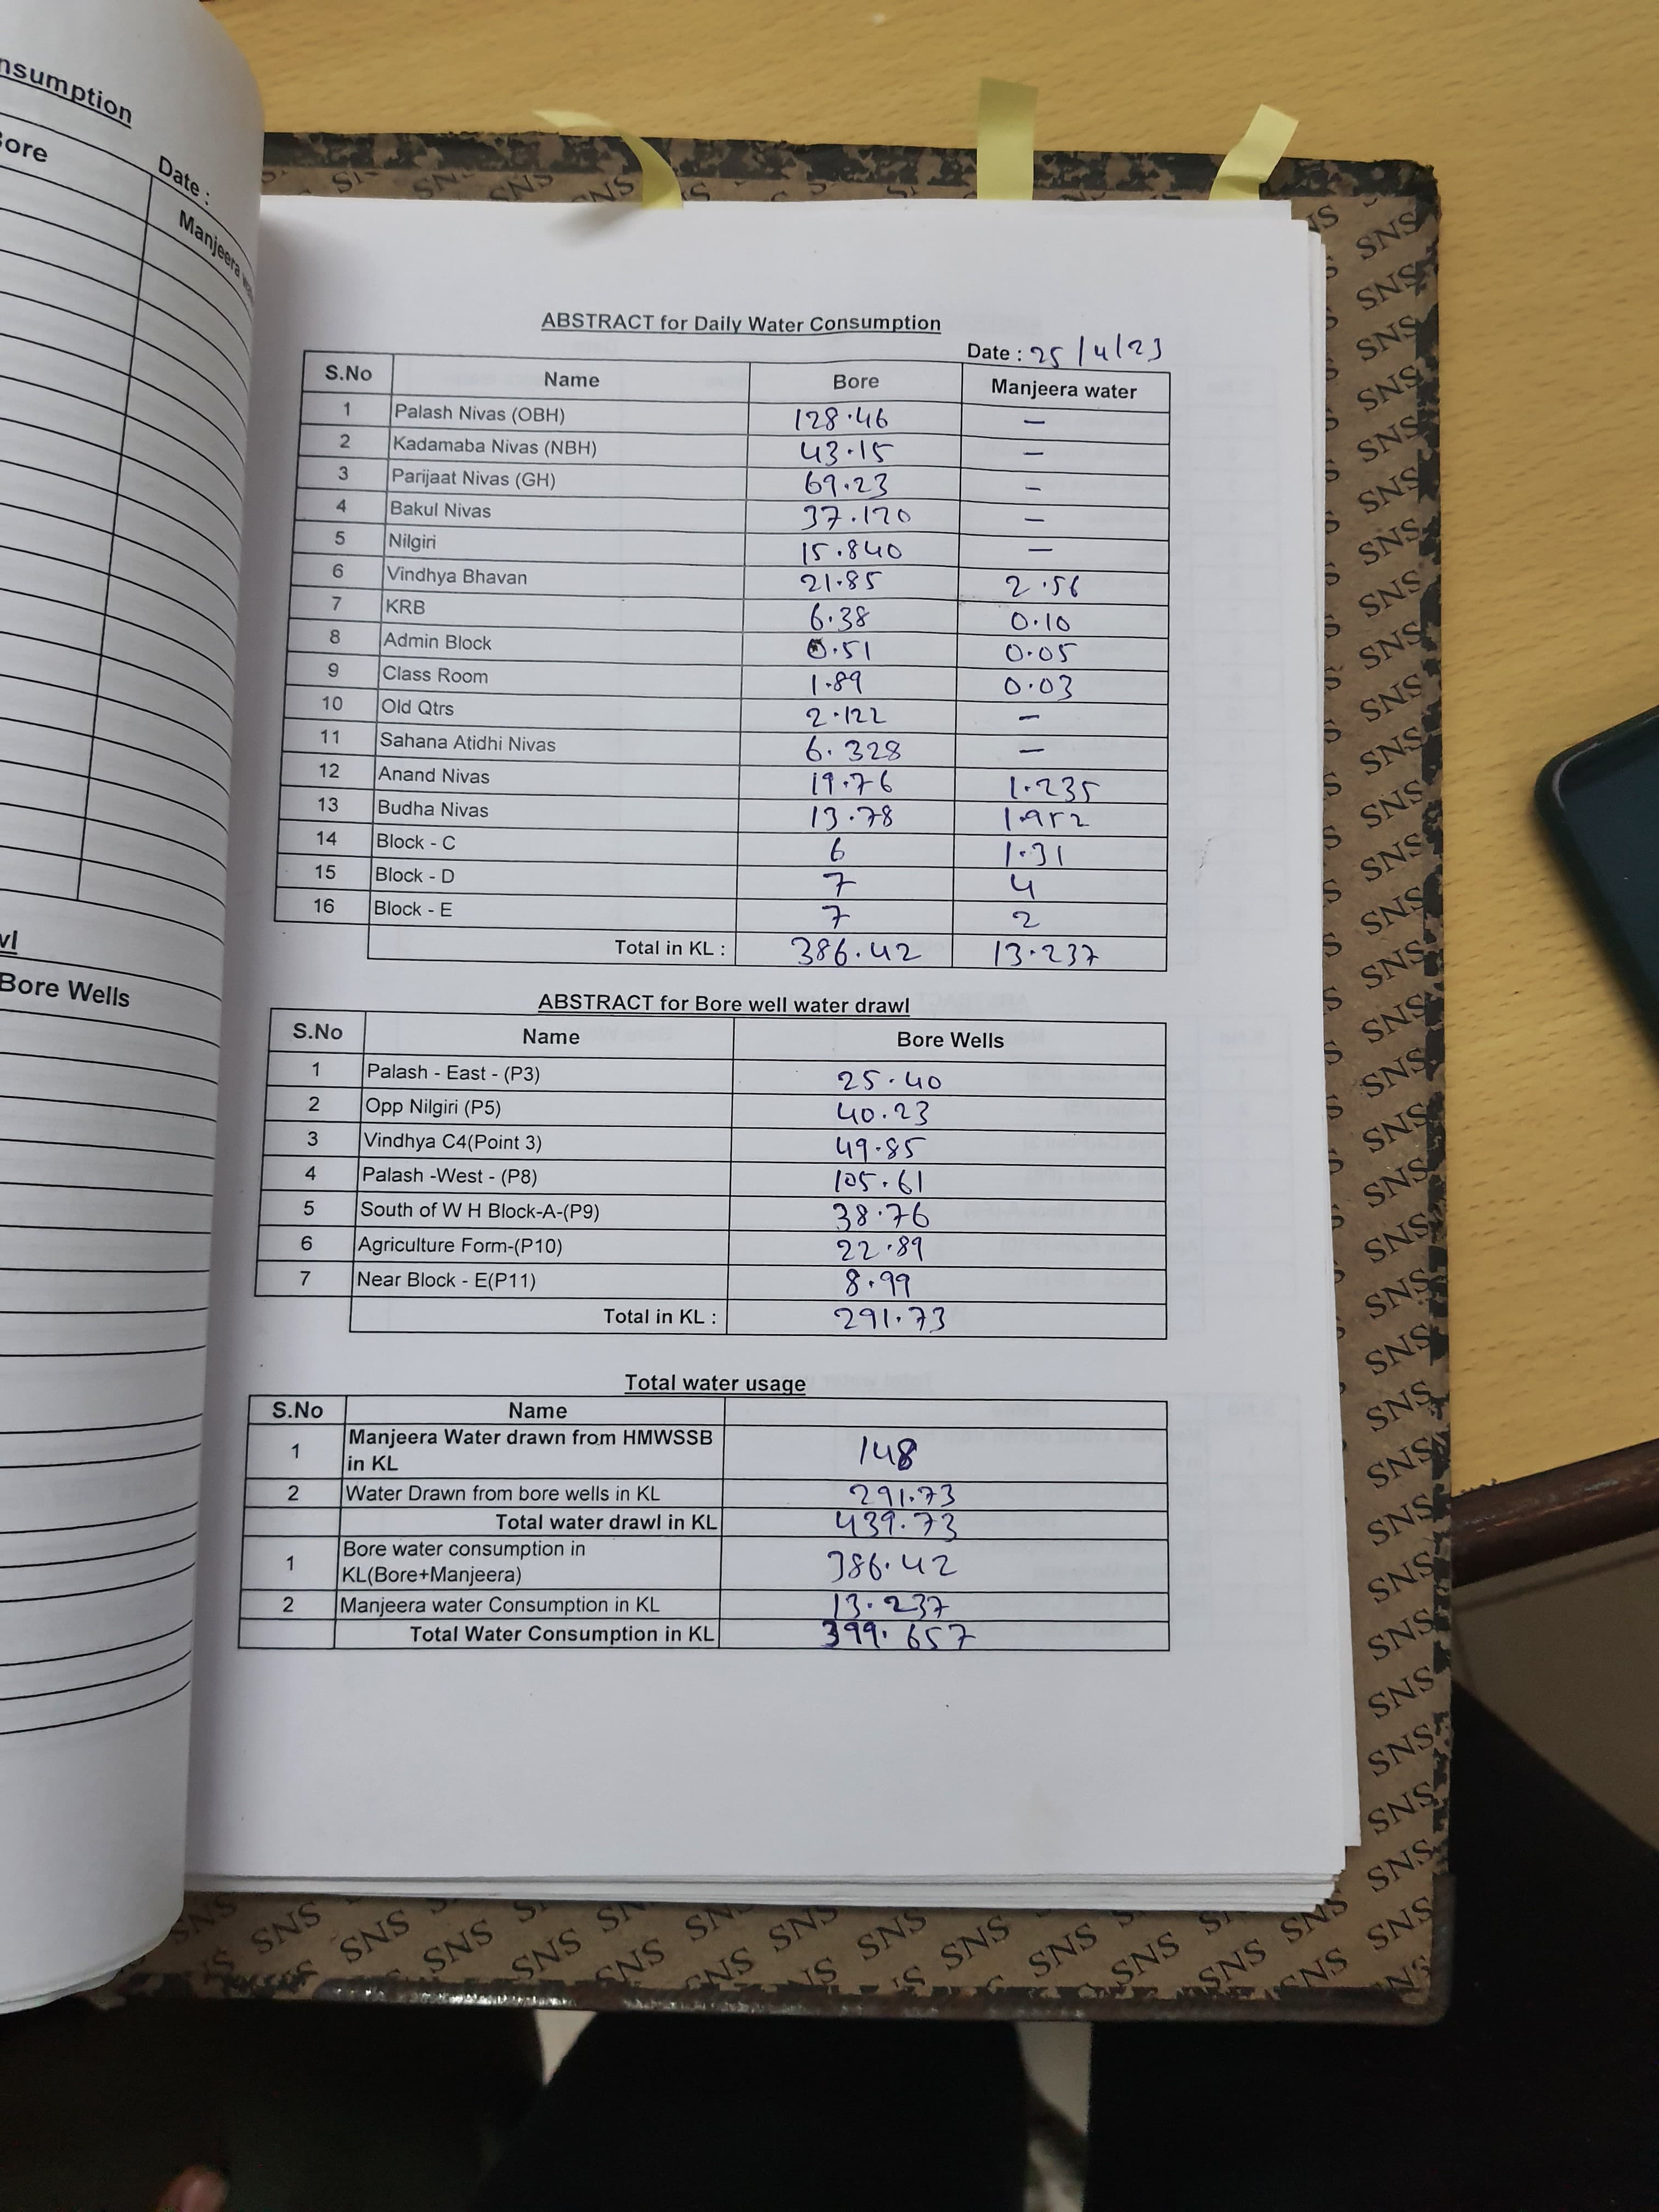 nsumption
Bore
Date :
Manjeera
wl
Bore Wells
ABSTRACT for Daily Water Consumption
Date : 25/4/23
S.No Name Bore Manjeera water
1 Palash Nivas (OBH) 128.46 –
2 Kadamaba Nivas (NBH) 43.15 –
3 Parijaat Nivas (GH) 69.23 –
4 Bakul Nivas 37.120 –
5 Nilgiri 15.840 –
6 Vindhya Bhavan 21.85 2.56
7 KRB 6.38 0.10
8 Admin Block 0.51 0.05
9 Class Room 1.89 0.03
10 Old Qtrs 2.122 –
11 Sahana Atidhi Nivas 6.328 –
12 Anand Nivas 19.76 1.235
13 Budha Nivas 13.78 1.952
14 Block - C 6 1.31
15 Block - D 7 4
16 Block - E 7 2
Total in KL : 386.42 13.237
ABSTRACT for Bore well water drawl
S.No Name Bore Wells
1 Palash - East - (P3) 25.40
2 Opp Nilgiri (P5) 40.23
3 Vindhya C4(Point 3) 49.85
4 Palash -West - (P8) 105.61
5 South of W H Block-A-(P9) 38.76
6 Agriculture Form-(P10) 22.89
7 Near Block - E(P11) 8.99
Total in KL : 291.73
Total water usage
S.No Name
1 Manjeera Water drawn from HMWSSB
in KL 148
2 Water Drawn from bore wells in KL 291.73
Total water drawl in KL 439.73
1 Bore water consumption in
KL(Bore+Manjeera) 386.42
2 Manjeera water Consumption in KL 13.237
Total Water Consumption in KL 399.657